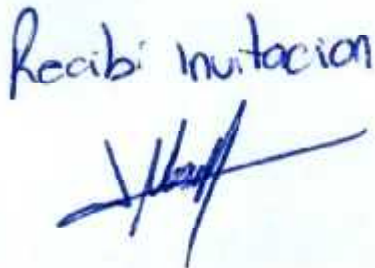 Recibi invitacion